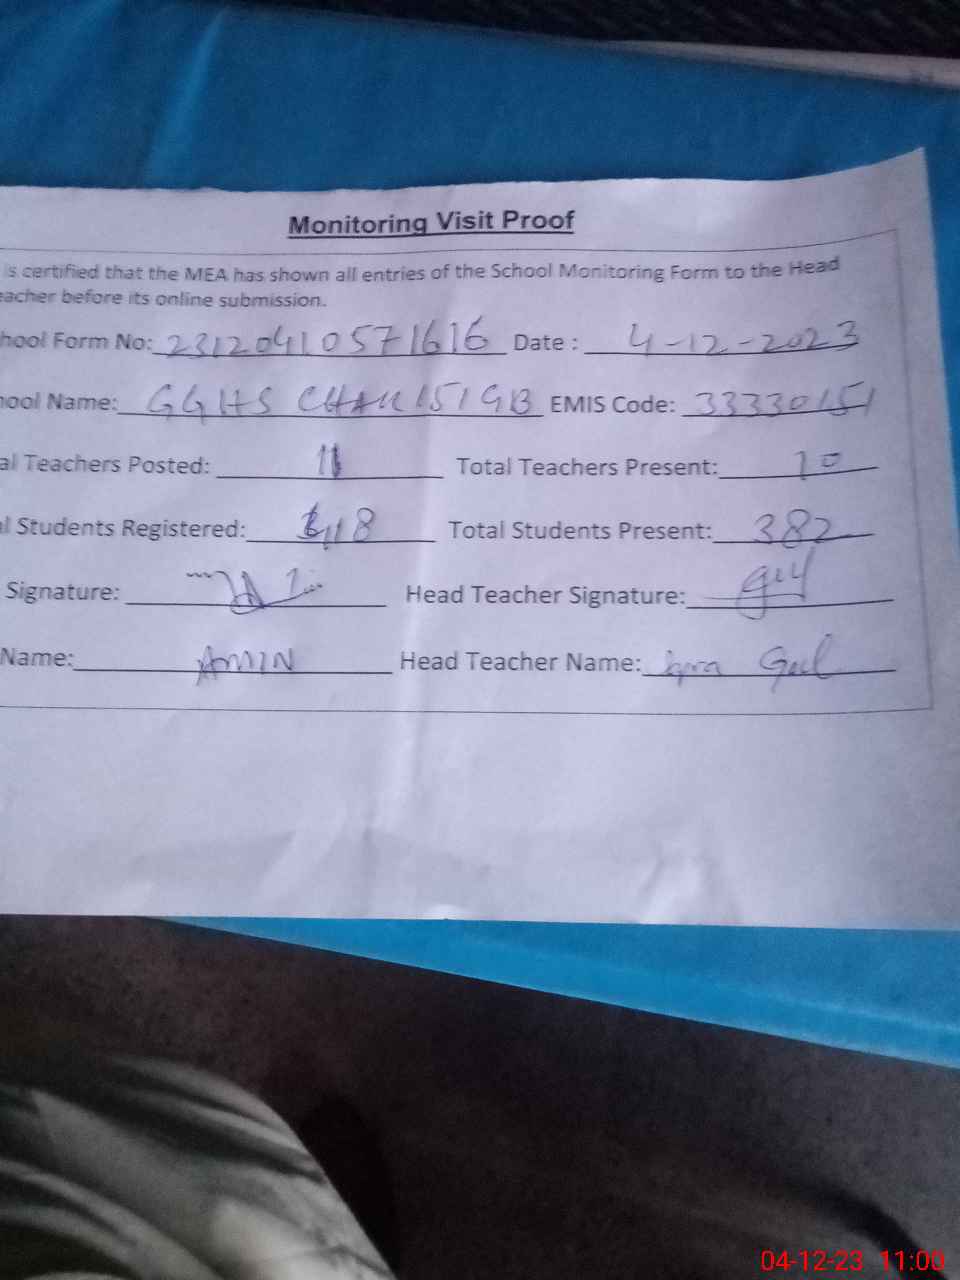 Monitoring Visit Proof
is certified that the MEA has shown all entries of the School Monitoring Form to the Head
eacher before its online submission.
hool Form No: 23120410571616 Date : 4-12-2023
hool Name: GGHS CHAK 151 GB EMIS Code: 33330151
al Teachers Posted: 11 Total Teachers Present: 10
l Students Registered: 418 Total Students Present: 382
Signature: Head Teacher Signature:
Name: AMIN Head Teacher Name: Gul
04-12-23 11:00